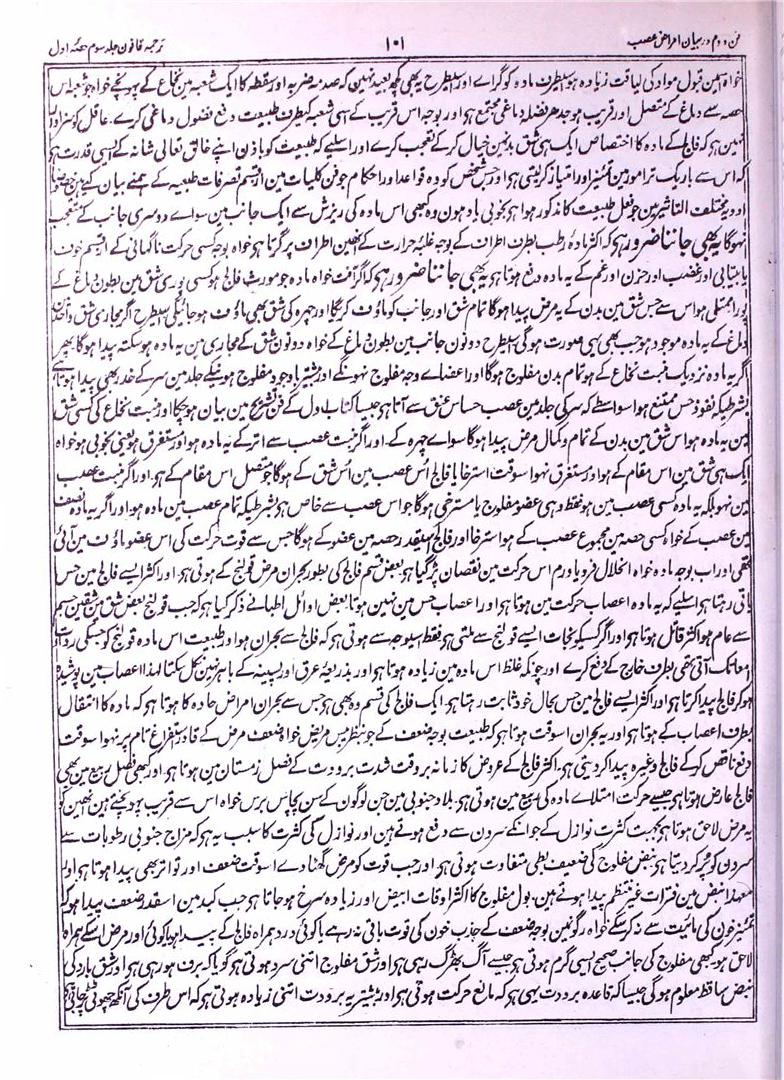 فن دوم در بیان امراض عصب
۱۰۱
ترجمہ قانون جلد سوم حصہ اول
خواہ اسمین قبول مواد کی لیاقت زیادہ ہو اسیطرف مادہ کو گراے اور اسیطرح یہ بھی کچھ بعید نہین کہ صدمہ ضربہ اور سقطہ کا ایک شعبہ مین نخاع کے پہونچے خواہ جو شعبہ اس
حصہ سے دماغ کے متصل اور قریب ہو جدھر فضلہ دماغی مجتمع ہو اور بوجہ اس قریب کے اسی شعبہ کیطرف طبیعت دفع فضول دماغی کرے۔ عاقل کو سزاوار
نہین ہو کہ فالج کے مادہ کا اختصاص ایک ہی شق بدنمین خیال کرکے تعجب کرے اور اسلیے کہ طبیعت کو باذن اپنے خالق تعالی شانہ کے ایسی قدرت ہو
کہ اس سے باریک تر امور مین تمیز اور امتیاز کرلیتی ہو اور جس شخص کو وہ قواعد اور احکام جو فن کلیات مین از قسم تصرفات طبیعیہ کے ہمنے بیان کیے ہین خصوصا
ادویہ مختلف التاثیر مین جو فعل طبیعت کا مذکور ہوا ہو بخوبی یاد ہون وہ کبھی اس مادہ کی ریزش سے ایک جانب مین سواے دوسری جانب کے متعجب
نہوگا یہ بھی جاننا ضرور ہو کہ اکثر مادہ رطب بطرف اطراف کے بوجہ غلبہ حرارت کے انھین اطراف پر گرتا ہو خواہ بوجہ کسی حرکت ناگہانی کے از قسم خوف
یا بیتابی اور غضب اور حزن اور غم کے یہ مادہ دفع ہوتا ہو یہ بھی جاننا ضرور ہو کہ اگر آفت خواہ مادہ جو مورث فالج ہو کسی پوری شق مین بطون دماغ کے
پورا ممتلی ہو اس سے جس شق مین بدن کے یہ مرض پیدا ہوگا تمام شق اور جانب کو ماؤف کریگا اور چہرہ کی شق بھی ماؤف ہو جائیگی اسیطرح اگر مجاری شق واحد مین
دماغ کے یہ مادہ موجود ہو جب بھی یہی صورت ہوگی اسیطرح دونون جانب مین بطون دماغ کے خواہ دونون شق کے مجاری مین یہ مادہ ہو سکتہ پیدا ہوگا۔ پھر
اگر یہ مادہ نزدیک منبت نخاع کے ہو تمام بدن مفلوج ہوگا اور اعضاے وجہ مفلوج نہونگے اور بیشتر باوجود مفلوج ہونیکے جلد مین سر کے خدر بھی پیدا ہوتا ہے
بشرطیکہ نفوذ حس ممتنع ہو اسواسطے کہ سر کی جلد مین عصب حساس عنق سے آتا ہو جیسا کتاب اول کے فن تشریح مین بیان ہوچکا اور منبت نخاع کی کسی شق
مین یہ مادہ ہو اس شق مین بدن کے تمام و کمال مرض پیدا ہوگا سواے چہرہ کے۔ اور اگر منبت عصب سے اتر کے یہ مادہ ہو اور مستغرق ہو یعنی بخوبی ہو خواہ
ایک ہی شق مین اس مقام کے ہو اور مستغرق نہو اسوقت استرخا یا فالج اس عصب مین اس شق کے ہوگا جو متصل اس مقام کے ہو۔ اور اگر منبت عصب
مین نہو بلکہ یہ مادہ کسی عصب مین ہو فقط وہی عضو مفلوج یا مسترخی ہوگا جو اس عصب سے خاص ہو بشرطیکہ تمام عصب مین مادہ ہو اور اگر یہ مادہ نصف
مین عصب کے خواہ کسی حصہ مین مجموع عصب کے ہو استرخا اور فالج اسیقدر حصہ مین عضو کے ہوگا جس سے قوت حرکت کی اس عضو ماؤف مین آتی
تھی اور اب بوجہ مادہ خواہ انحلال فرد یا ورم اس حرکت مین نقصان پڑ گیا ہو بعض قسم فالج کی بطور بحران مرض قولنج کے ہوتی ہو۔ اور اکثر ایسے فالج مین حس
باقی رہتا ہو اسلیے کہ یہ مادہ اعصاب حرکت مین ہوتا ہو اور اعصاب حس مین نہین ہوتا بعض اوائل اطبا نے ذکر کیا ہو کہ جب قولنج بعض شق مین شقین جسم
سے عام ہو اکثر قاتل ہوتا ہو اور اگر کسیکو نجات ایسے قولنج سے ملتی ہو فقط اسیوجہ سے ہوتی ہو کہ فالج سے بحران ہو اور طبیعت اس مادہ قولنج کو جسکی ردات
امعا تک آتی تھی بطرف خارج کے دفع کرے اور چونکہ غلظ اس مادہ مین زیادہ ہوتا ہو اور بذریعہ عرق اور پسینہ کے باہر نہین نکل سکتا لہذا اعصاب مین پوشیدہ
ہوکر فالج پیدا کرتا ہو اور اکثر ایسے فالج مین حس بحال خود ثابت رہتا ہو۔ ایک فالج کی قسم وہ بھی ہو جس سے بحران امراض حادہ کا ہوتا ہو کہ مادہ کا انتقال
بطرف اعصاب کے ہوتا ہو اور یہ بحران اسوقت ہوتا ہو کہ طبیعت بوجہ ضعف کے جو بنظر سن مریض خواہ ضعف مرض کے قادر استفراغ تام پر نہو اسوقت
دفع ناقص کرکے فالج وغیرہ پیدا کر دیتی ہو۔ اکثر فالج کے عروض کا زمانہ بر وقت شدت برودت کے فصل زمستان مین ہوتا ہو اور کبھی فصل ربیع مین بھی
فالج عارض ہوتا ہو جیسے حرکت امتلاے مادہ کی ربیع مین ہوتی ہو۔ بلاد جنوبی مین جن لوگون کے سن پچاس برس خواہ اس سے قریب پہونچتے ہین انھین کو
یہ مرض لاحق ہوتا ہو بجہت کثرت نوازل کے جو انکے سردن سے دفع ہوتے ہین اور نوازل کی کثرت کا سبب یہ ہو کہ مزاج جنوبی رطوبات سے
سردن کو پُر کر دیتا ہو۔ نبض مفلوج کی ضعیف بطی متفاوت ہوتی ہو اور جب قوت کو مرض گھٹا دے اسوقت ضعف اور تواتر بھی پیدا ہوتا ہو اور
معہذا نبض مین فترات غیر منتظم پیدا ہوتے ہین۔ بول مفلوج کا اکثر اوقات ابیض اور زیادہ سرخ ہو جاتا ہو جب کبد مین اسقدر ضعف پیدا ہو کہ
تمیز خون کی مائیت سے نہ کرسکے خواہ رگونمین بوجہ ضعف کے جذب خون کی قوت باقی نہ رہے یا کوئی درد ہمراہ فالج کے پیدا ہو یا کوئی اور مرض اسکے ہمراہ
لاحق ہو کبھی مفلوج کی جانب صحیح ایسی گرم ہوتی ہو جیسے آگ بھڑک رہی ہو اور شق مفلوج اتنی سرد ہوتی ہو گویا کہ برف ہو رہی ہو اور شق بارد کی
نبض ساقط معلوم ہوگی جیسا کہ قاعدہ برودت یہی ہو کہ مانع حرکت ہوتی ہو اور بیشتر یہ برودت اتنی زیادہ ہوتی ہو کہ اس طرف کی آنکھ چھوٹی ہو جاتی ہو